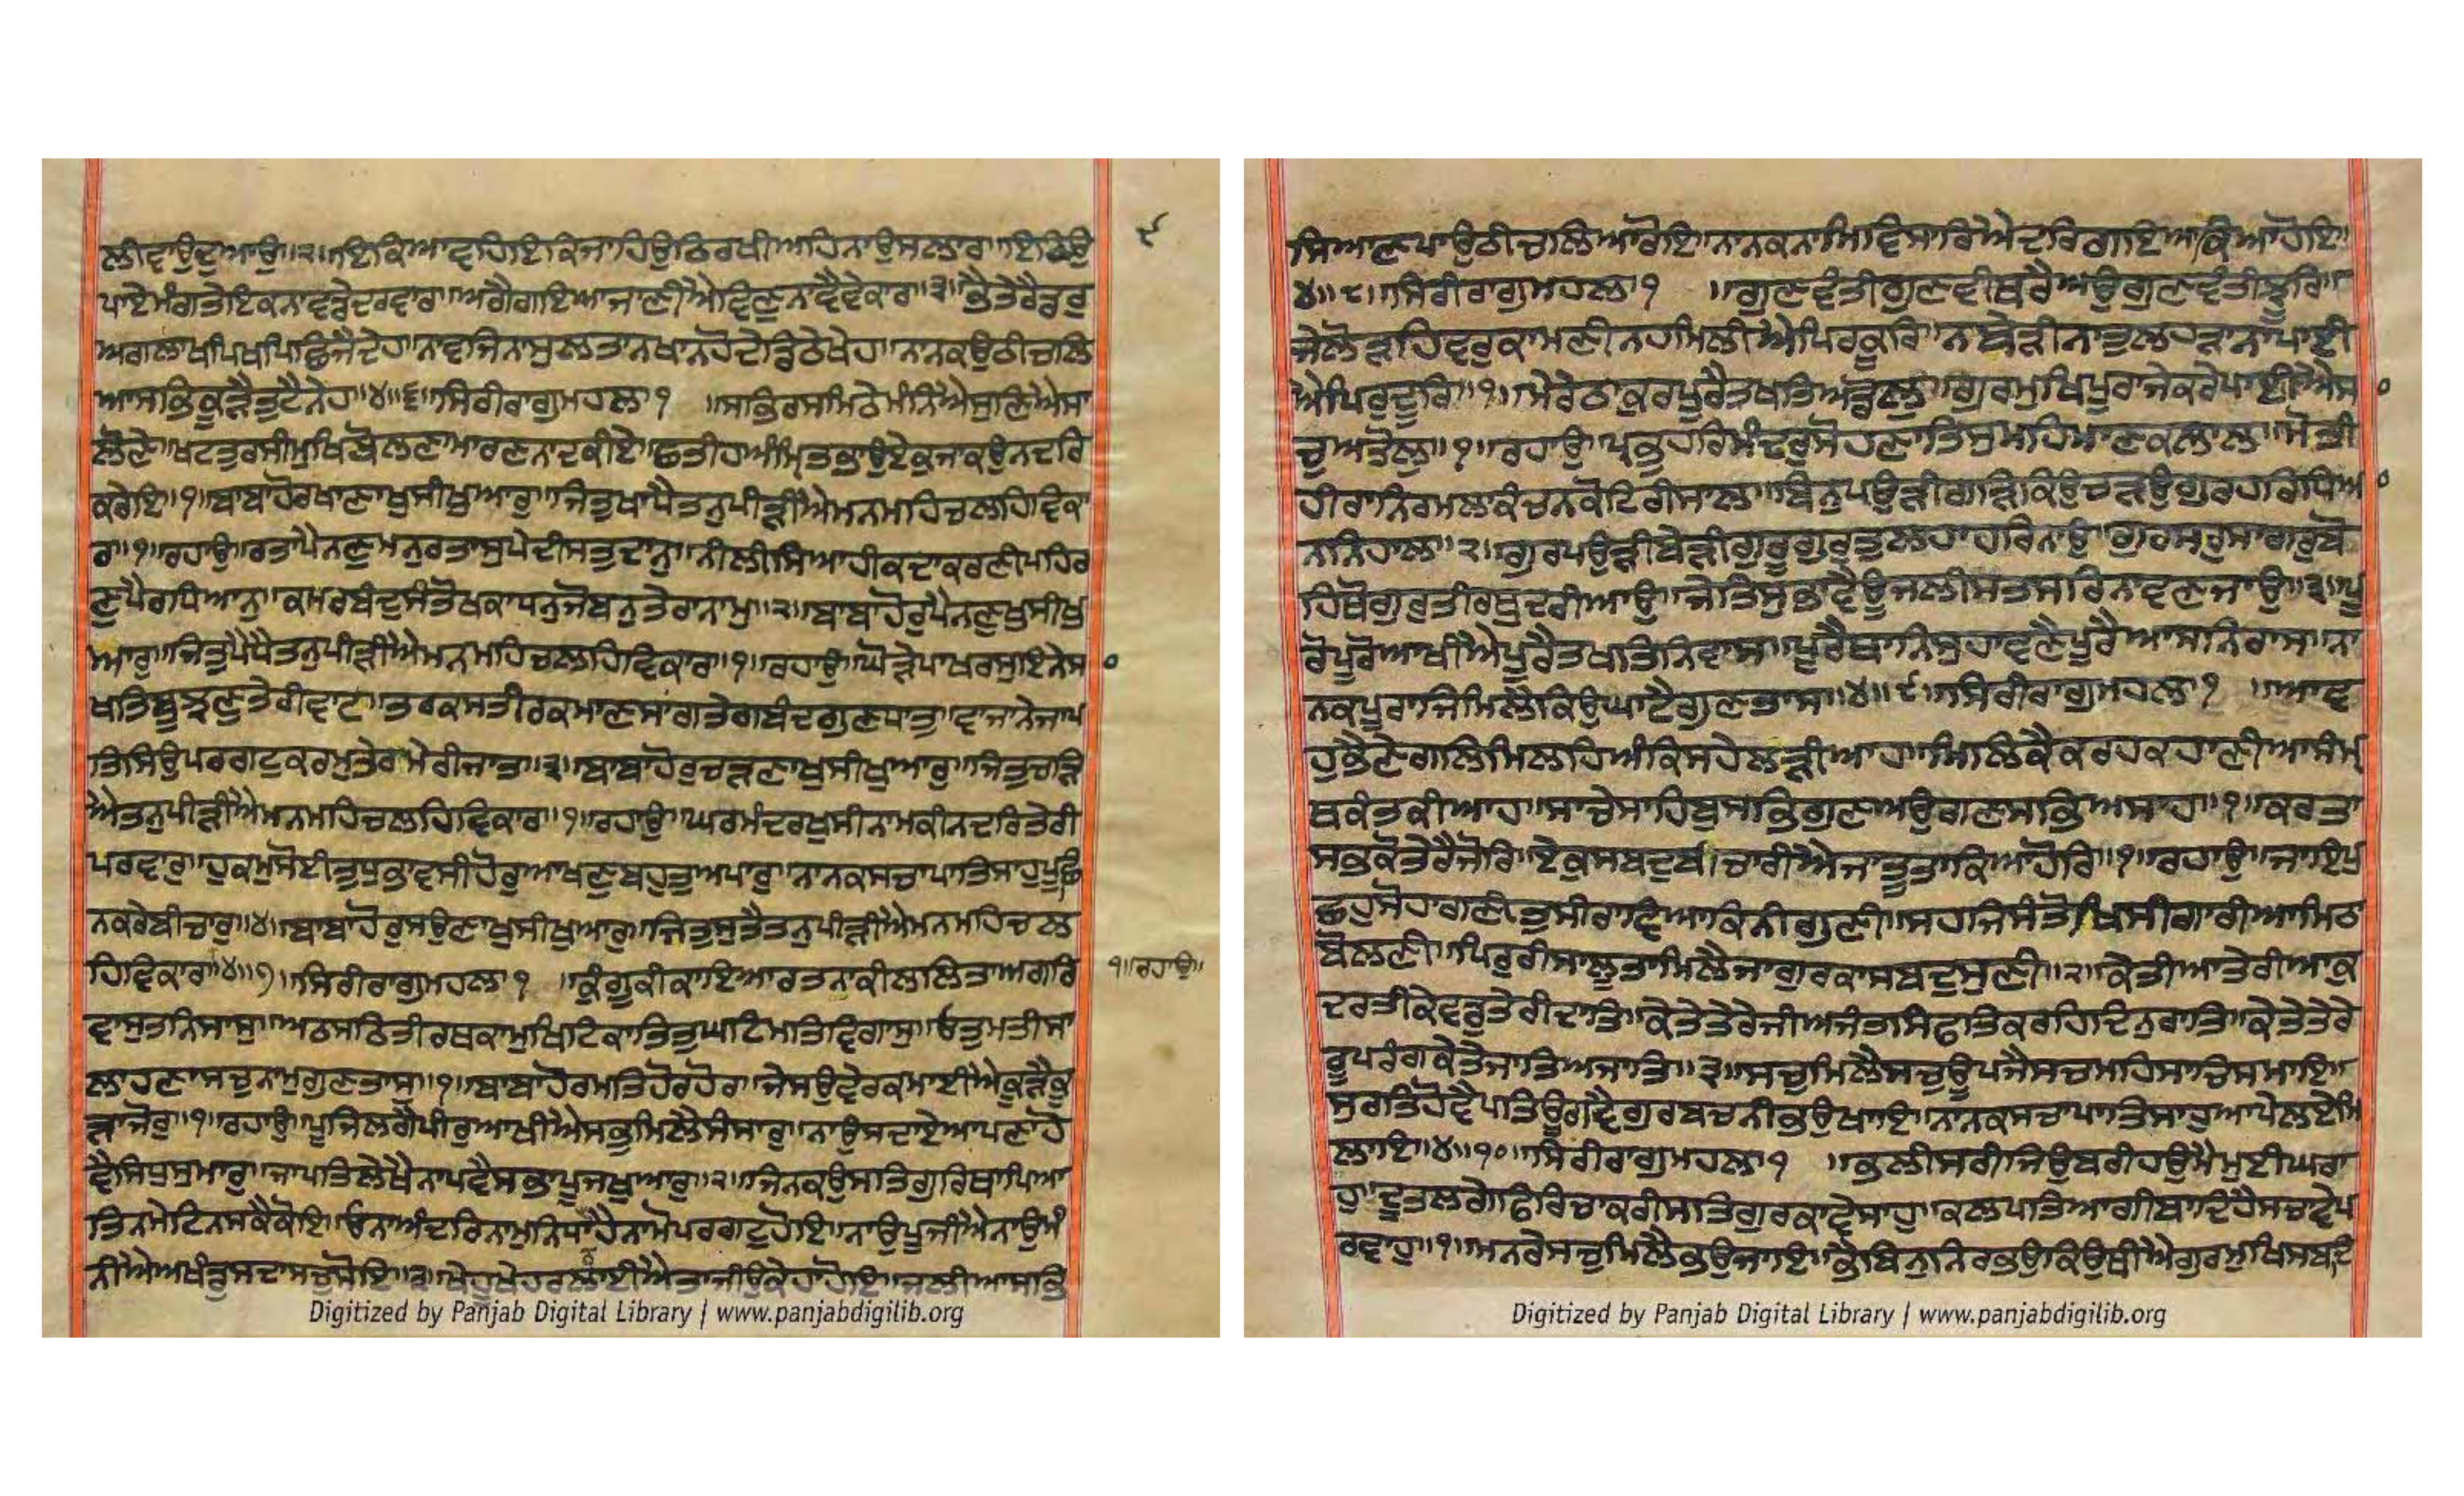 ਲੀਵਾਉਦੁਆਉ॥੨॥ਇਕਿਆਵਹਿਇਕਿਜਾਹਿਉਠਿਰਖੀਅਹਿਨਾਉਸਲਾਰ॥ਇਕਿਉ
ਪਾਏਮੰਗਤੇਇਕਨਾਵਡੇਦਰਵਾਰ॥ਅਗੈਗਇਆਜਾਣੀਐਵਿਣੁਨਾਵੈਵੇਕਾਰ॥੩॥ਭੈਤੇਰੈਡਰੁ
ਅਗਲਾਖਪਿਖਪਿਛਿਜੈਦੇਹ॥ਨਾਵਜਿਨਾਸੁਲਤਾਨਖਾਨਹੋਦੇਡਿਠੇਖੇਹ॥ਨਾਨਕਉਠੀਚਲਿ
ਆਸਭਿਕੂੜੈਤੁਟੈਨੇਹ॥੪॥੬॥ਸਿਰੀਰਾਗੁਮਹਲਾ੧ ॥ਸਭਿਰਸਮਿਠੇਮੰਨਿਐਸੁਣਿਐਸਾ
ਲੋਣੇ॥ਖਟਤੁਰਸੀਮੁਖਿਬੋਲਣਾਮਾਰਣਨਾਦਕੀਏ॥ਛਤੀਹਅੰਮ੍ਰਿਤਭਾਉਏਕੁਜਾਕਉਨਦਰਿ
ਕਰੇਇ॥੧॥ਬਾਬਾਹੋਰਖਾਣਾਖੁਸੀਖੁਆਰੁ॥ਜਿਤੁਖਾਧੈਤਨੁਪੀੜੀਐਮਨਮਹਿਚਲਹਿਵਿਕਾ
ਰ॥੧॥ਰਹਾਉ॥ਰਤਾਪੈਨਣੁਮਨੁਰਤਾਸੁਪੇਦੀਸਤੁਦਾਨੁ॥ਨੀਲੀਸਿਆਹੀਕਦਾਕਰਣੀਪਹਿਰ
ਣੁਪੈਰਧਿਆਨੁ॥ਕਮਰਬੰਦੁਸੰਤੋਖਕਾਧਨੁਜੋਬਨੁਤੇਰਾਨਾਮੁ॥੨॥ਬਾਬਾਹੋਰੁਪੈਨਣੁਖੁਸੀਖੁ
ਆਰੁ॥ਜਿਤੁਪੈਧੈਤਨੁਪੀੜੀਐਮਨਮਹਿਚਲਹਿਵਿਕਾਰ॥੧॥ਰਹਾਉ॥ਘੋੜੇਪਾਖਰਸੁਇਨੇਸ
ਖਤਿਬੂਝਣੁਤੇਰੀਵਾਟ॥ਤਰਕਸਤੀਰਕਮਾਣਸਾਗਤੇਗਬੰਦਗੁਣਧਾਤੁ॥ਵਾਜਾਨੇਜਾਪ
ਤਿਸਿਉਪਰਗਟੁਕਰਮੁਤੇਰਾਮੇਰੀਜਾਤ॥੩॥ਬਾਬਾਹੋਰੁਚੜਣਾਖੁਸੀਖੁਆਰੁ॥ਜਿਤੁਚੜਿ
ਐਤਨੁਪੀੜੀਐਮਨਮਹਿਚਲਹਿਵਿਕਾਰ॥੧॥ਰਹਾਉ॥ਘਰਮੰਦਰਖੁਸੀਨਾਮਕੀਨਦਰਿਤੇਰੀ
ਪਰਵਾਰੁ॥ਹੁਕਮੁਸੋਈਤੁਧੁਭਾਵਸੀਹੋਰੁਆਖਣੁਬਹੁਤੁਅਪਾਰੁ॥ਨਾਨਕਸਚਾਪਾਤਿਸਾਹੁਪੂਛਿ
ਨਕਰੇਬੀਚਾਰੁ॥੪॥ਬਾਬਾਹੋਰੁਸਉਣਾਖੁਸੀਖੁਆਰੁ॥ਜਿਤੁਸੁਤੈਤਨੁਪੀੜੀਐਮਨਮਹਿਚਲ
ਹਿਵਿਕਾਰ॥੪॥੭॥ਸਿਰੀਰਾਗੁਮਹਲਾ੧ ॥ਕੁੰਗੂਕੀਕਾਇਆਰਤਨਾਕੀਲਲਿਤਾਅਗਰਿ
ਵਾਸੁਤਨਿਸਾਸੁ॥ਅਠਸਠਿਤੀਰਥਕਾਮੁਖਿਟਿਕਾਤਿਤੁਘਟਿਮਤਿਵਿਗਾਸੁ॥ਓਤੁਮਤੀਸਾ
ਲਾਹਣਾਸਚੁਨਾਮੁਗੁਣਤਾਸੁ॥੧॥ਬਾਬਾਹੋਰਮਤਿਹੋਰਹੋਰ॥ਜੇਸਉਵੇਰਕਮਾਈਐਕੂੜੈਕੂ
ੜਾਜੋਰੁ॥੧॥ਰਹਾਉ॥ਪੂਜਲਗੈਪੀਰੁਆਖੀਐਸਭੁਮਿਲੈਸੰਸਾਰੁ॥ਨਾਉਸਦਾਏਆਪਣਾਹੋ
ਵੈਸਿਧੁਸੁਮਾਰੁ॥ਜਾਪਤਿਲੇਖੈਨਾਪਵੈਸਭਾਪੂਜਖੁਆਰੁ॥੨॥ਜਿਨਕਉਸਤਿਗੁਰਿਥਾਪਿਆ
ਤਿਨਮੇਟਿਨਸਕੈਕੋਇ॥ਓਨਾਅੰਦਰਿਨਾਮੁਨਿਧਾਨੁਹੈਨਾਮੋਪਰਗਟੁਹੋਇ॥ਨਾਉਪੂਜੀਐਨਾਉਮੰ
ਨੀਐਅਖੰਡੁਸਦਾਸਚੁਸੋਇ॥੩॥ਖੇਹੂਖੇਹਰਲਾਈਐਤਾਜੀਉਕੇਹਾਹੋਇ॥ਜਲੀਆਸਭਿ
੯
੧॥ਰਹਾਉ॥
Digitized by Panjab Digital Library | www.panjabdigilib.org
ਸਿਆਣਪਾਉਠੀਚਲਿਆਰੋਇ॥ਨਾਨਕਨਾਮਿਵਿਸਾਰਿਐਦਰਿਗਇਆਕਿਆਹੋਇ॥
੪॥੮॥ਸਿਰੀਰਾਗੁਮਹਲਾ੧ ॥ਗੁਣਵੰਤੀਗੁਣਵੀਥਰੈਅਉਗੁਣਵੰਤੀਝੂਰਿ॥
ਜੇਲੋੜਹਿਵਰੁਕਾਮਣੀਨਹਮਿਲੀਐਪਿਰਕੂਰਿ॥ਨਬੇੜੀਨਾਤੁਲਹੜਾਨਾਪਾਈ
ਐਪਿਰੁਦੂਰਿ॥੧॥ਮੇਰੇਠਾਕੁਰਪੂਰੈਤਖਤਿਅਡੋਲੁ॥ਗੁਰਮੁਖਿਪੂਰਾਜੇਕਰੇਪਾਈਐਸ
ਚੁਅਤੋਲੁ॥੧॥ਰਹਾਉ॥ਪ੍ਰਭੁਹਰਿਮੰਦਰੁਸੋਹਣਾਤਿਸੁਮਹਿਮਾਣਕਲਾਲ॥ਮੋਤੀ
ਹੀਰਾਨਿਰਮਲਾਕੰਚਨਕੋਟਗਿਰੀਸਾਲ॥ਬਿਨੁਪਉੜੀਗੜਿਕਿਉਚੜਉਗੁਰਹਰਿਧਿਆ
ਨਨਿਹਾਲ॥੨॥ਗੁਰਪਉੜੀਬੇੜੀਗੁਰੂਗੁਰੁਤੁਲਹਾਹਰਿਨਾਉ॥ਗੁਰਸਰੁਸਾਗਰੁਬੋ
ਹਿਥੋਗੁਰੁਤੀਰਥੁਦਰੀਆਉ॥ਜੇਤਿਸੁਭਾਵੈਊਜਲੀਸਤਸਰਿਨਾਵਣਜਾਉ॥੩॥ਪੂ
ਰੋਪੂਰੋਆਖੀਐਪੂਰੈਤਖਤਿਨਿਵਾਸ॥ਪੂਰੈਥਾਨਿਸੁਹਾਵਣੈਪੂਰੈਆਸਨਿਰਾਸ॥ਨਾ
ਨਕਪੂਰਾਜੇਮਿਲੈਕਿਉਘਾਟੈਗੁਣਤਾਸ॥੪॥੯॥ਸਿਰੀਰਾਗੁਮਹਲਾ੧ ॥ਆਵ
ਹੁਭੈਣੇਗਲਿਮਿਲਹਿਅੰਕਿਸਹੇਲੜੀਆਹ॥ਮਿਲਿਕੈਕਰਹਕਹਾਣੀਆਸੰਮ੍ਰ
ਥਕੰਤਕੀਆਹ॥ਸਾਚੇਸਾਹਿਬੁਸਭਿਗੁਣਅਉਗਣਸਭਿਅਸਾਹ॥੧॥ਕਰਤਾ
ਸਭਕੋਤੇਰੈਜੋਰਿ॥ਏਕੁਸਬਦੁਬੀਚਾਰੀਐਜਾਤੂਤਾਕਿਆਹੋਰਿ॥੧॥ਰਹਾਉ॥ਜਾਇਪੁ
ਛਹੁਸੋਹਾਗਣੀਤੁਸੀਰਾਵਿਆਕਿਨੀਗੁਣੀ॥ਸਹਜਿਸੰਤੋਖਿਸੀਗਾਰੀਆਮਿਠਾ
ਬੋਲਣੀ॥ਪਿਰੁਰੀਸਾਲੂਤਾਮਿਲੈਜਾਗੁਰਕਾਸਬਦੁਸੁਣੀ॥੨॥ਕੇਤੀਆਤੇਰੀਆਕੁ
ਦਰਤੀਕੇਵਡੁਤੇਰੀਦਾਤਿ॥ਕੇਤੇਤੇਰੇਜੀਅਜੰਤਸਿਫਤਿਕਰਹਿਦਿਨੁਰਾਤਿ॥ਕੇਤੇਤੇਰੇ
ਰੂਪਰੰਗਕੇਤੇਜਾਤਿਅਜਾਤਿ॥੩॥ਸਚੁਮਿਲੈਸਚੁਊਪਜੈਸਚਮਹਿਸਾਚਿਸਮਾਇ॥
ਸੁਰਤਿਹੋਵੈਪਤਿਊਗਵੈਗੁਰਬਚਨੀਭਉਖਾਇ॥ਨਾਨਕਸਚਾਪਾਤਿਸਾਹੁਆਪੇਲਏਮਿ
ਲਾਇ॥੪॥੧੦॥ਸਿਰੀਰਾਗੁਮਹਲਾ੧ ॥ਭਲੀਸਰੀਜਿਉਬਰੀਹਉਮੈਮੁਈਘਰਾ
ਹੁ॥ਦੂਤਲਗੇਫਿਰਿਚਾਕਰੀਸਤਿਗੁਰਕਾਵੇਸਾਹੁ॥ਕਲਪਤਿਆਗੀਬਾਦਿਹੈਸਚਾਵੇਪ
ਰਵਾਹੁ॥੧॥ਮਨਰੇਸਚੁਮਿਲੈਭਉਜਾਇ॥ਭੈਬਿਨੁਨਿਰਭਉਕਿਉਥੀਐਗੁਰਮੁਖਿਸਬਦਿ
Digitized by Panjab Digital Library | www.panjabdigilib.org